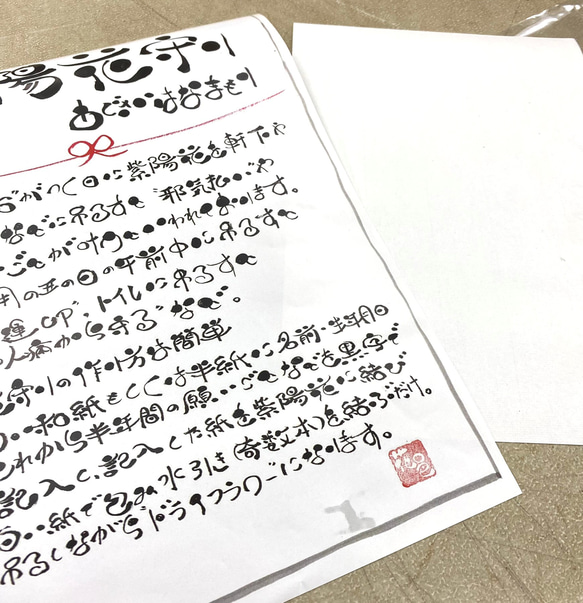 陽花守り
あじさいおまもり
がつく日に紫陽花を軒下や
などに吊るすと 邪気払いや
ごとが叶うといわれております。
月の丑の日の午前中に吊るすと
運UP、トイレに吊るすと
人病から守るなど。
守りの作り方は簡単
い和紙もしくは半紙に名前・生年月日
これから半年間の願いごとなどを黒字で
記入し、記入した紙を紫陽花に結び
白い紙で包み水引き(奇数本)を結ぶだけ。
吊るしながらドライフラワーになります。